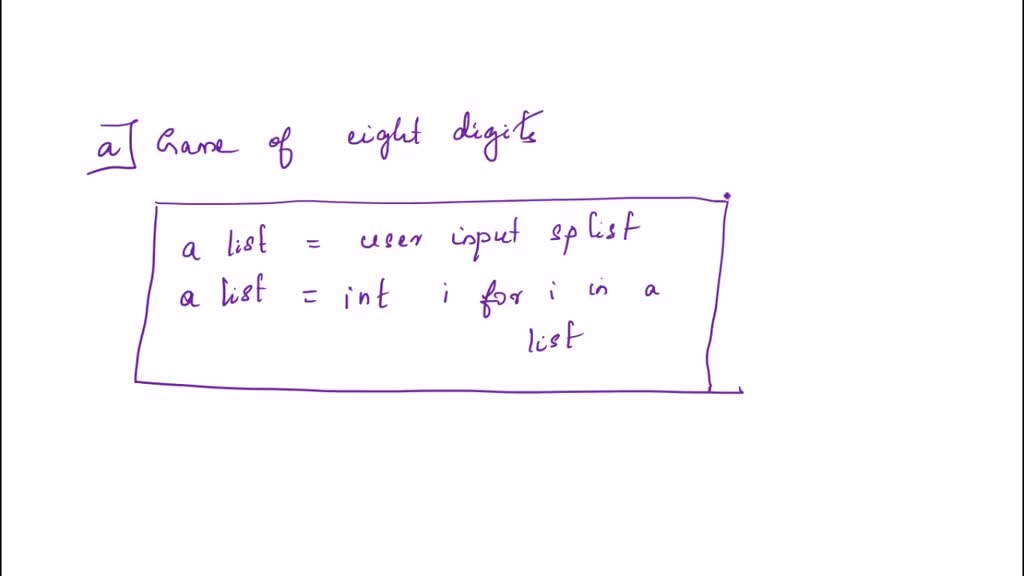 a] Game of eight digits
a list = user input splist
a list = int i for i in a
list